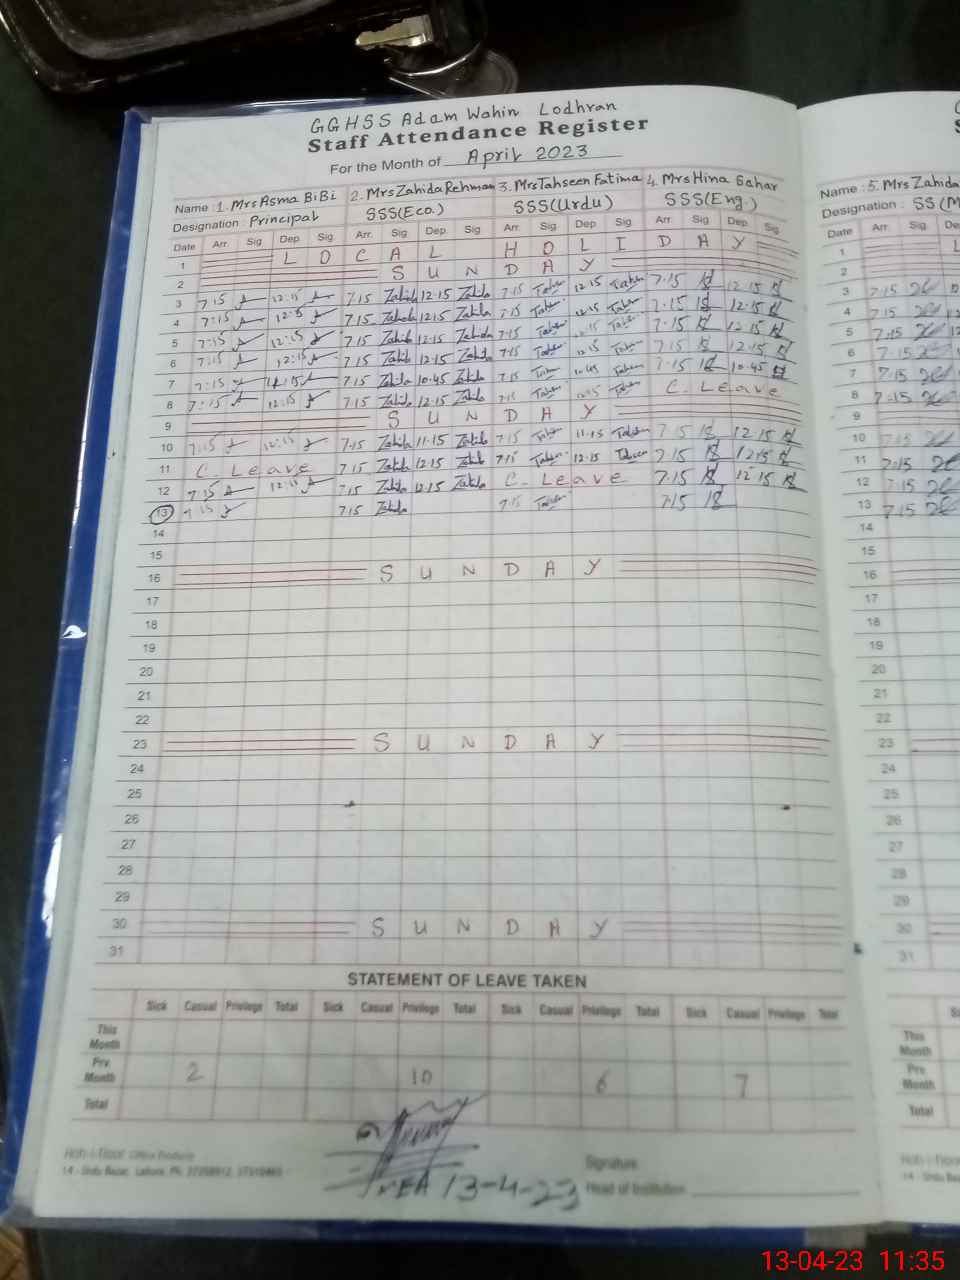 GGHSS Adam Wahin Lodhran
Staff Attendance Register
For the Month of April 2023
Name : 1. Mrs Asma BiBi 2. Mrs Zahida Rehman 3. Mrs Tahseen Fatima 4. Mrs Hina Sahar
Designation : Principal SSS(Eco.) SSS(Urdu) SSS(Eng.)
Date Arr. Sig Dep Sig Arr. Sig Dep. Sig Arr. Sig Dep Sig Arr. Sig Dep Sig
1 LOCAL HOLIDAY
2 SUNDAY
3 7:15 12:15 7.15 Zahida 12.15 Zahida 7.15 12.15 7.15 12.15
4 7:15 12:15 7.15 Zahida 12.15 Zahida 7.15 12.15 7.15 12.15
5 7:15 12:15 7.15 Zahida 12.15 Zahida 7.15 12.15 7.15 12.15
6 7:15 12:15 7.15 Zahida 12.15 Zahida 7.15 12.15 7.15 12.15
7 7:15 7.15 Zahida 10.45 Zahida 7.15 10.45 7.15 10.45
8 7:15 12:15 7.15 Zahida 12.15 Zahida 7.15 C. Leave
9 SUNDAY
10 7:15 12:15 7.15 Zahida 11.15 Zahida 7.15 11.15 7.15 12.15
11 C. Leave 7.15 Zahida 12.15 7.15 12.15 7.15 12.15
12 7:15 12:15 7.15 Zahida 12.15 Zahida C. Leave 7.15 12.15
13 7:15 7.15 Zahida 7.15 7.15
14
15
16 SUNDAY
17
18
19
20
21
22
23 SUNDAY
24
25
26
27
28
29
30 SUNDAY
31
STATEMENT OF LEAVE TAKEN
Sick Casual Privilege Total Sick Casual Privilege Total Sick Casual Privilege Total Sick Casual Privilege Total
This Month
Prv. Month 2 10 6 7
Total
13-4-23
Signature
Head of Institution
Name : 5. Mrs Zahida
Designation : SS
Date Arr. Sig
1
2
3 7.15
4 7.15
5 7.15
6 7.15
7 7.15
8 7.15
9
10 7.15
11 7.15
12 7.15
13 7.15
14
15
16
17
18
19
20
21
22
23
24
25
26
27
28
29
30
31
This Month
Prv Month
Total
13-04-23 11:35